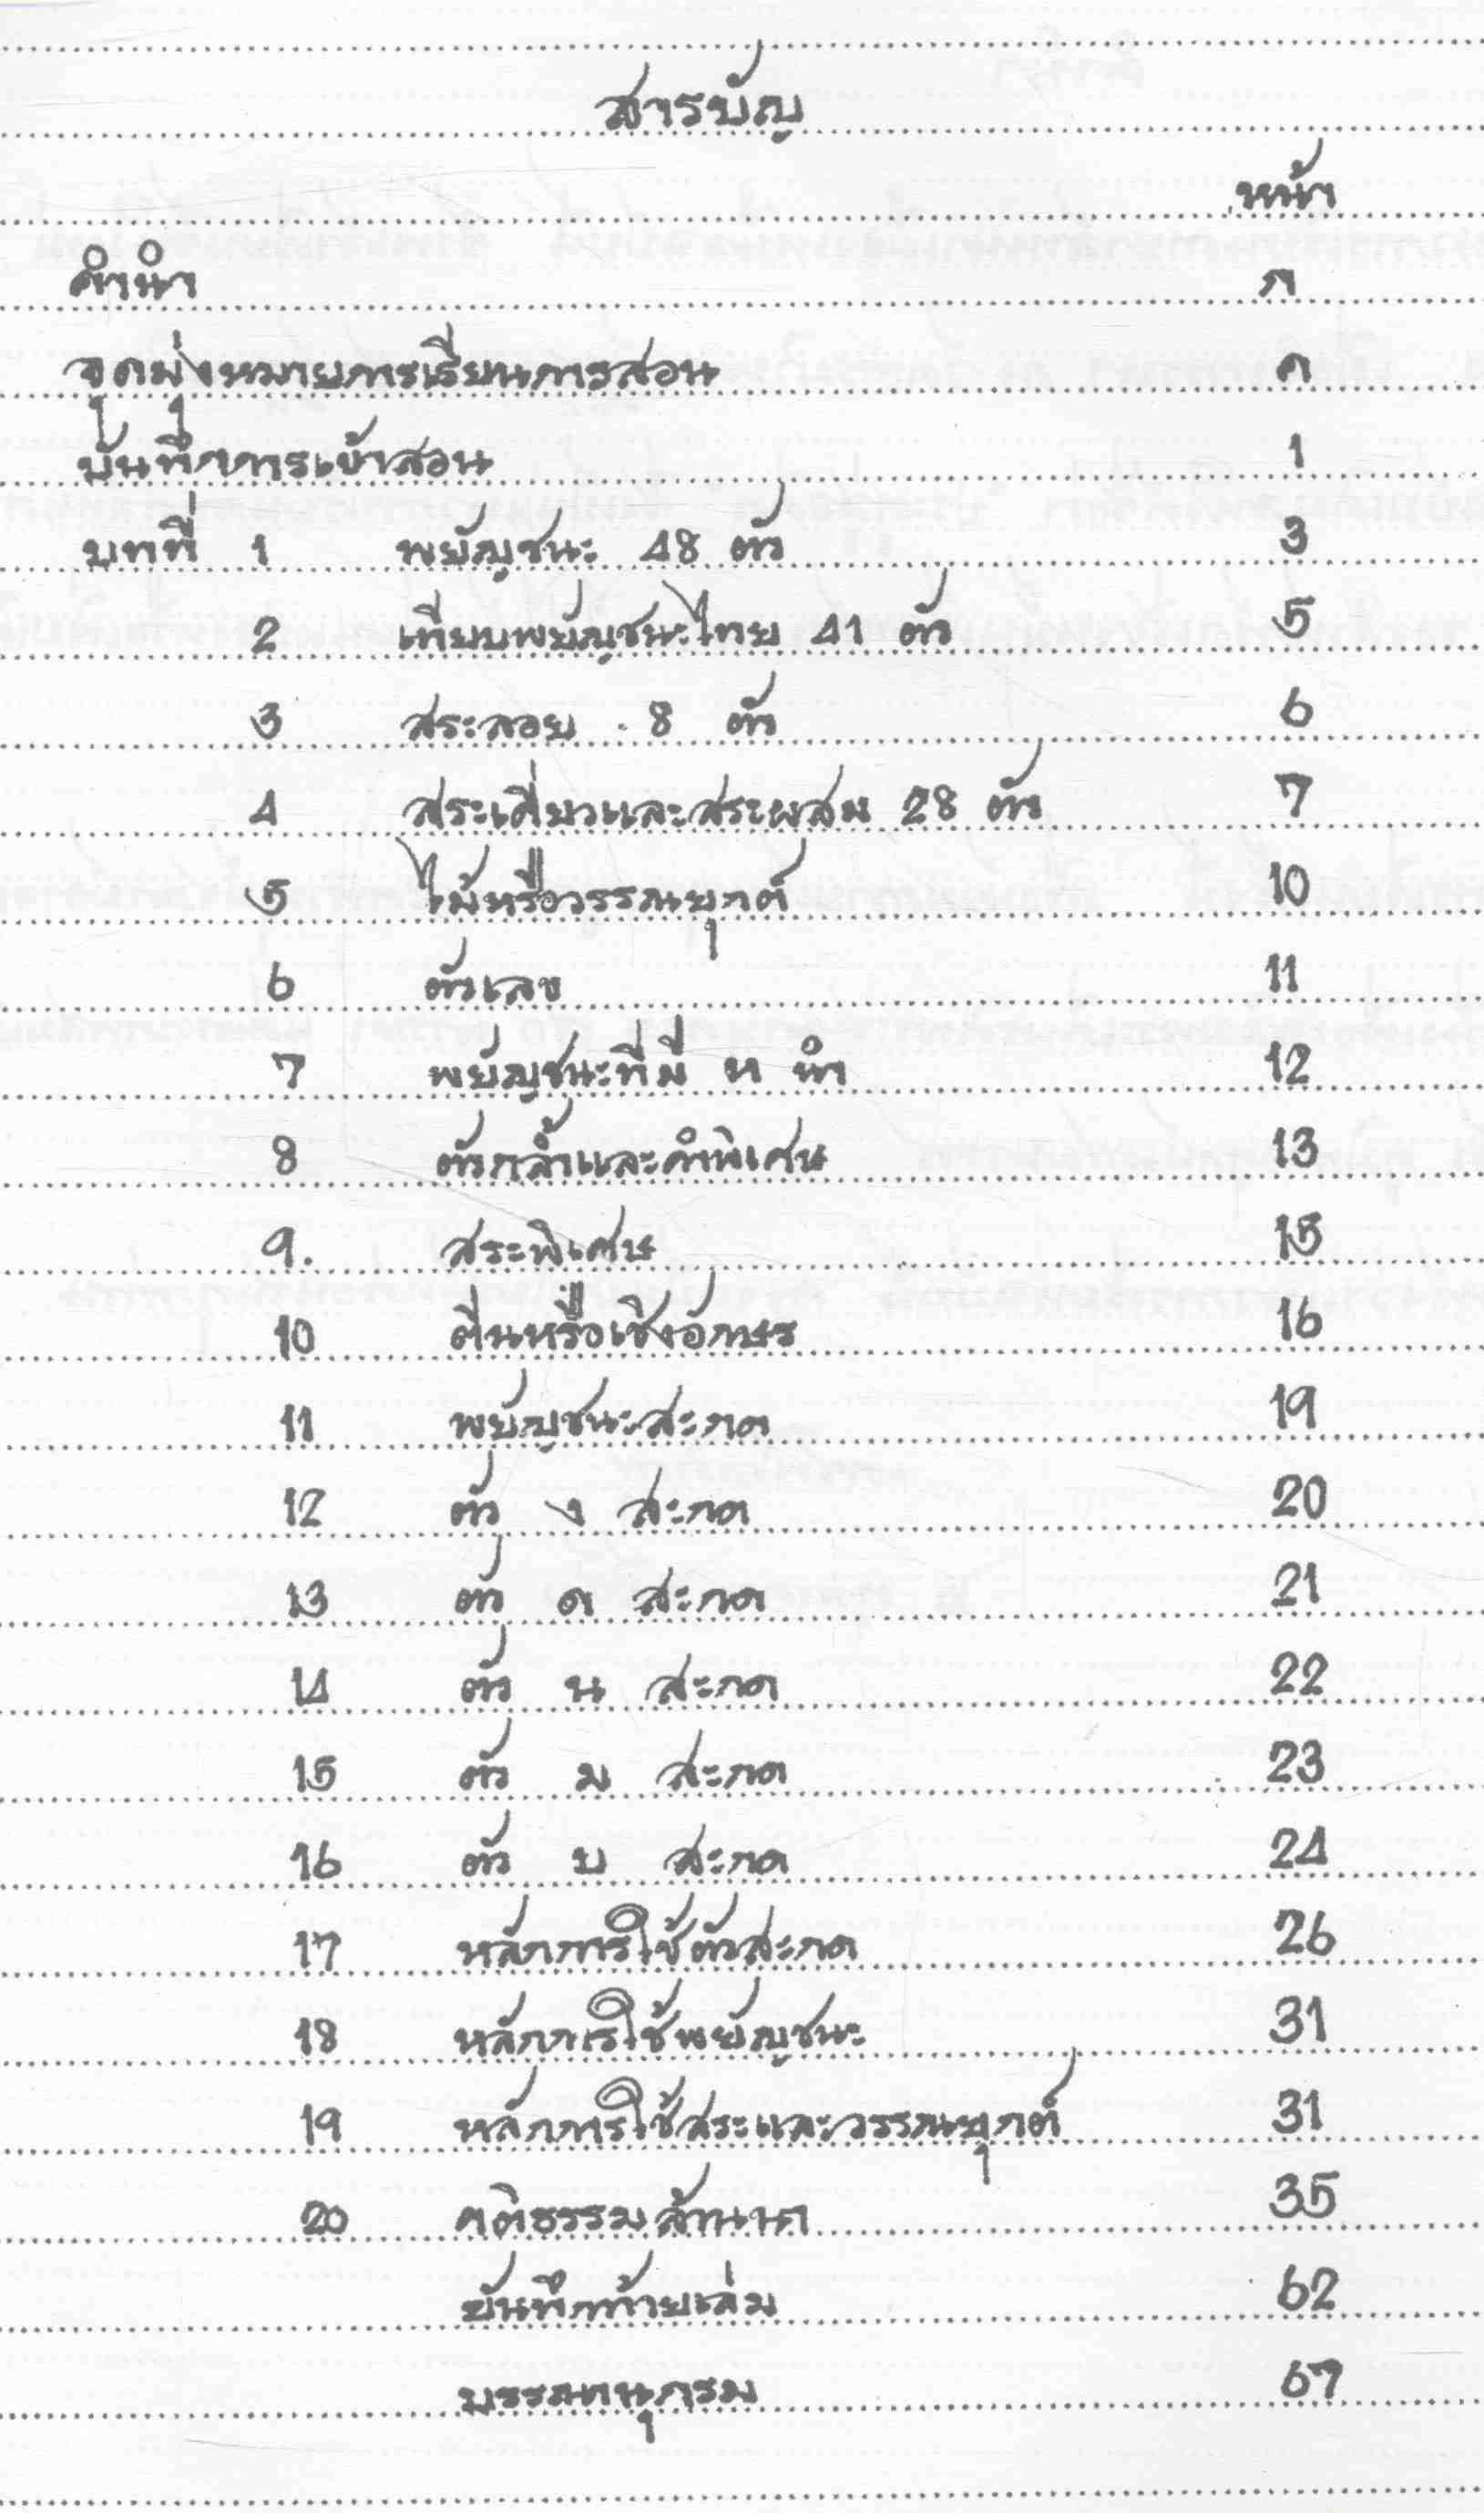 สารบัญ
หน้า
คำนำ ก
จุดมุ่งหมายการเรียนการสอน ค
บันทึกการเข้าสอน 1
บทที่ 1 พยัญชนะ 48 ตัว 3
2 เทียบพยัญชนะไทย 41 ตัว 5
3 สระลอย 8 ตัว 6
4 สระเดี่ยวและสระผสม 28 ตัว 7
5 ไม้หรือวรรณยุกต์ 10
6 ตัวเลข 11
7 พยัญชนะที่มี ห นำ 12
8 ตัวกล้ำและคำพิเศษ 13
9. สระพิเศษ 15
10 ตีนหรือเชิงอักษร 16
11 พยัญชนะสะกด 19
12 ตัว ง สะกด 20
13 ตัว ด สะกด 21
14 ตัว น สะกด 22
15 ตัว ม สะกด 23
16 ตัว บ สะกด 24
17 หลักการใช้ตัวสะกด 26
18 หลักการใช้พยัญชนะ 31
19 หลักการใช้สระและวรรณยุกต์ 31
20 คติธรรมล้านนา 35
บันทึกท้ายเล่ม 62
บรรณานุกรม 67